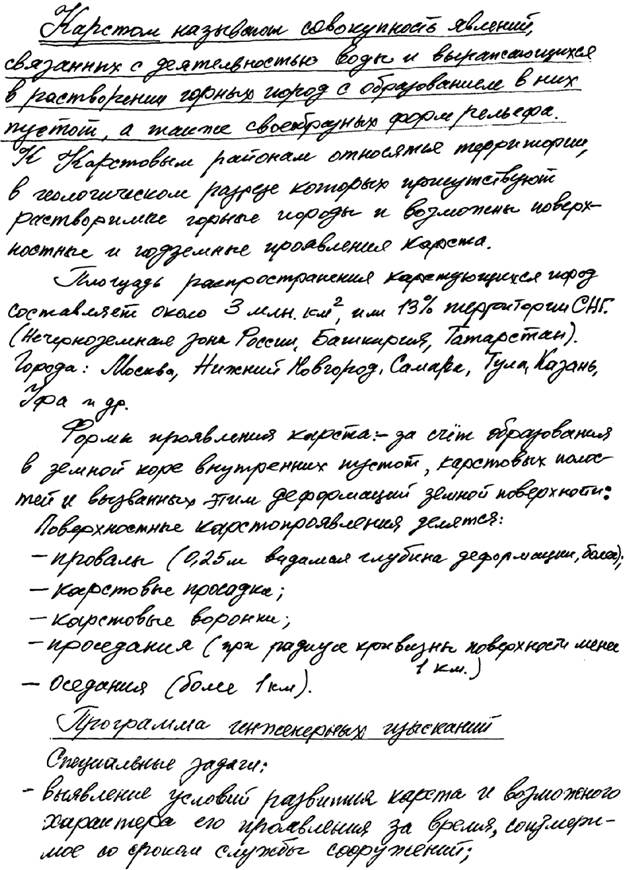 Карстом называют совокупность явлений,
связанных с деятельностью воды и выражающихся
в растворении горных пород с образованием в них
пустот, а также своеобразных форм рельефа.
К Карстовым районам относятся территории,
в геологическом разрезе которых присутствуют
растворимые горные породы и возможны поверх-
ностные и подземные проявления карста.
Площадь распространения карстующихся пород
составляет около 3 млн. км², или 13% территории СНГ.
(Нечерноземная зона России, Башкирия, Татарстан).
Города: Москва, Нижний Новгород, Самара, Тула, Казань,
Уфа и др.
Формы проявления карста:- за счёт образования
в земной коре внутренних пустот, карстовых полос-
тей и вызванных этим деформаций земной поверхности:
Поверхностные карстопроявления делятся:
- провалы (0,25м глубина деформации, более);
- карстовые просадка;
- карстовые воронки;
- проседания (при радиусе кривизны поверхности менее
1 км.)
- Оседания (более 1км).
Программа инженерных изысканий
Специальные задачи:
- выявление условий развития карста и возможного
характера его проявления за время, соизмери-
мое со сроком службы сооружений;